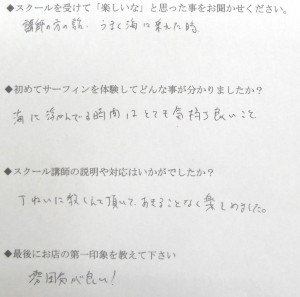 ◆スクールを受けて「楽しいな」と思った事をお聞かせください。
講師の方の話、うまく海に乗れた時。
◆初めてサーフィンを体験してどんな事が分かりましたか？
海に浮かんでる時間はとても気持ち良いこと
◆スクール講師の説明や対応はいかがでしたか？
丁ねいに教えて頂いて、あきることなく楽しめました。
◆最後にお店の第一印象を教えて下さい
雰囲気が良い！